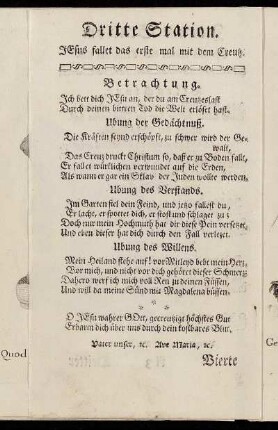 Dritte Station.
JEsus fallet das erste mal mit dem Creutz.
Betrachtung.
Ich bett dich JEsu an, der du am Creutzeslast
Durch deinen bittern Tod die Welt erlöset hast.
Ubung der Gedächtnuß.
Die Kräften seynd erschöpft, zu schwer wird der Ge-
walt,
Das Creutz druckt Christum so, daß er zu Boden fallt,
Er fallet würklichen verwundet auf die Erden,
Als wann er gar ein Sclav der Juden wollte werden.
Ubung des Verstands.
Im Garten fiel dein Feind, und jetzo fallest du,
Er lachet, er spottet dich, er stoßt und schlaget zu;
Doch nur mein Hochmuth hat dir diese Pein versetzet,
Und eben dieser hat dich durch den Fall verletzet.
Ubung des Willens.
Mein Heiland stehe auf! vor Mitleyd bebt mein Herz,
Vor mich, und nicht vor dich gehöret dieser Schmerz;
Dahero werf ich mich voll Reu zu deinen Füssen,
Und will da meine Sünd wie Magdalena büssen.
*
O JEsu wahrer GOtt, gecreutzigt höchstes Gut
Erbarm dich über uns durch dein kostbares Blut.
Vater unser, ꝛc. Ave Maria, ꝛc.
Vierte
Quod